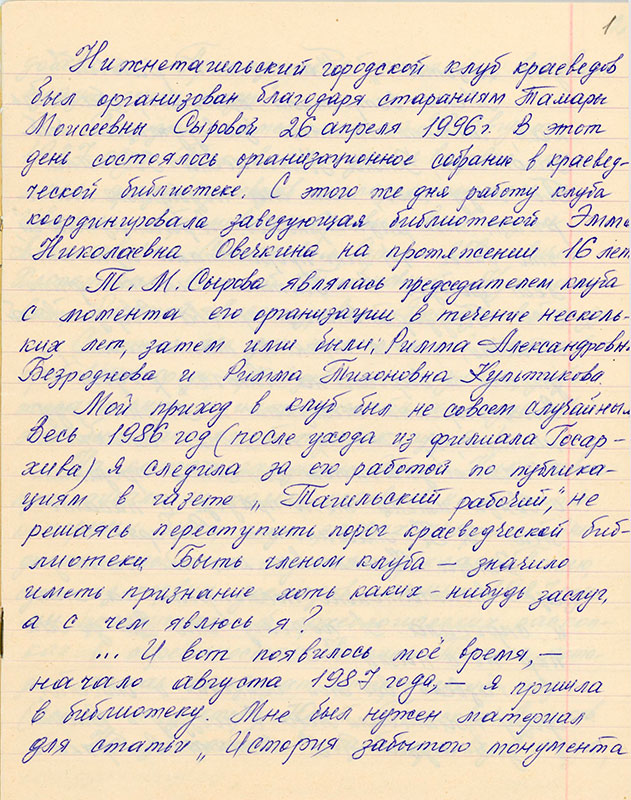 1
Нижнетагильский городской клуб краеведов
был организован благодаря стараниям Тамары
Моисеевны Сыровой 26 апреля 1996 г. В этот
день состоялось организационное собрание в краевед-
ческой библиотеке. С этого же дня работу клуба
координировала заведующая библиотекой Эмма
Николаевна Овечкина на протяжении 16 лет.
Т. М. Сырова являлась председателем клуба
с момента его организации в течение несколь-
ких лет, затем ими были: Римма Александровна
Безроднова и Римма Тихоновна Культикова.
Мой приход в клуб был не совсем случайным.
Весь 1986 год (после ухода из филиала Госар-
хива) я следила за его работой по публика-
циям в газете „Тагильский рабочий“, не
решаясь переступить порог краеведческой биб-
лиотеки. Быть членом клуба – значило
иметь признание хоть каких-нибудь заслуг,
а с чем явлюсь я?
... И вот появилось моё время, –
начало августа 1987 года, – я пришла
в библиотеку. Мне был нужен материал
для статьи „История забытого монумента